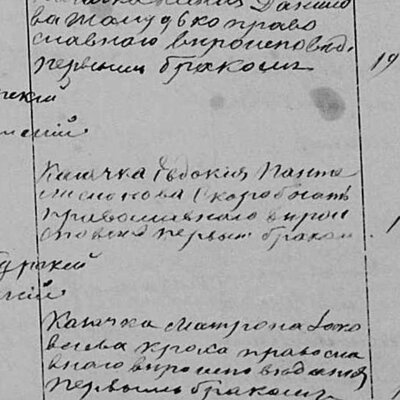 Данило
ва Жолудько право
славнаго вѣроисповѣд.
первымъ бракомъ
19
Казачка Евдокія Панте
леимонова Скоробогать
православнаго вѣрои
споведа первым браком
Казачка Матрона Яко
влева Кроха правосла
внаго вѣроисповѣданія
первымъ бракомъ